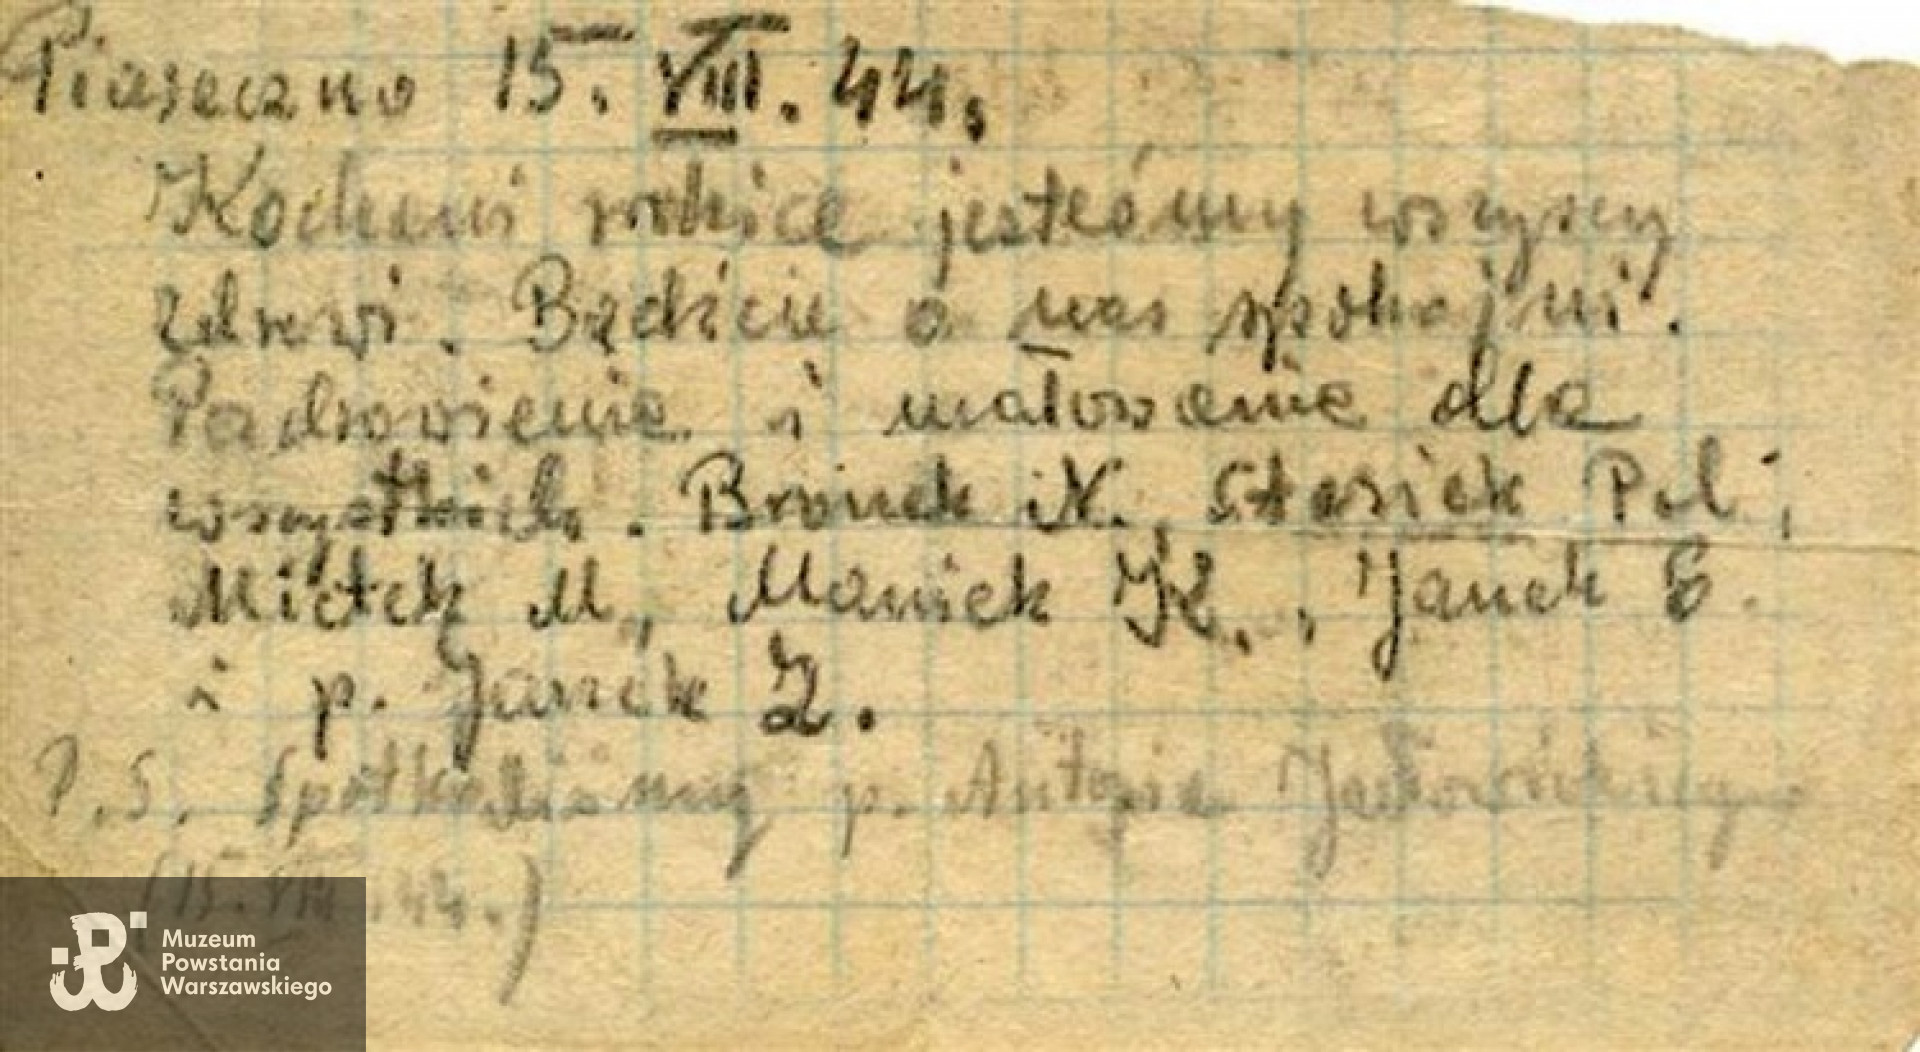 Piaseczno 15. VIII. 44.
Kochani rodzice jesteśmy wszyscy
zdrowi. Bądźcie o nas spokojni.
Pozdrowienie i ucałowanie dla
wszystkich. Bronek N., Stasiek Pol,
Mietek M, Maniek K., Janek
i p. Janek Z.
P.S. Spotkaliśmy p. Antosia
(15. VIII. 44.)
Muzeum
Powstania
Warszawskiego